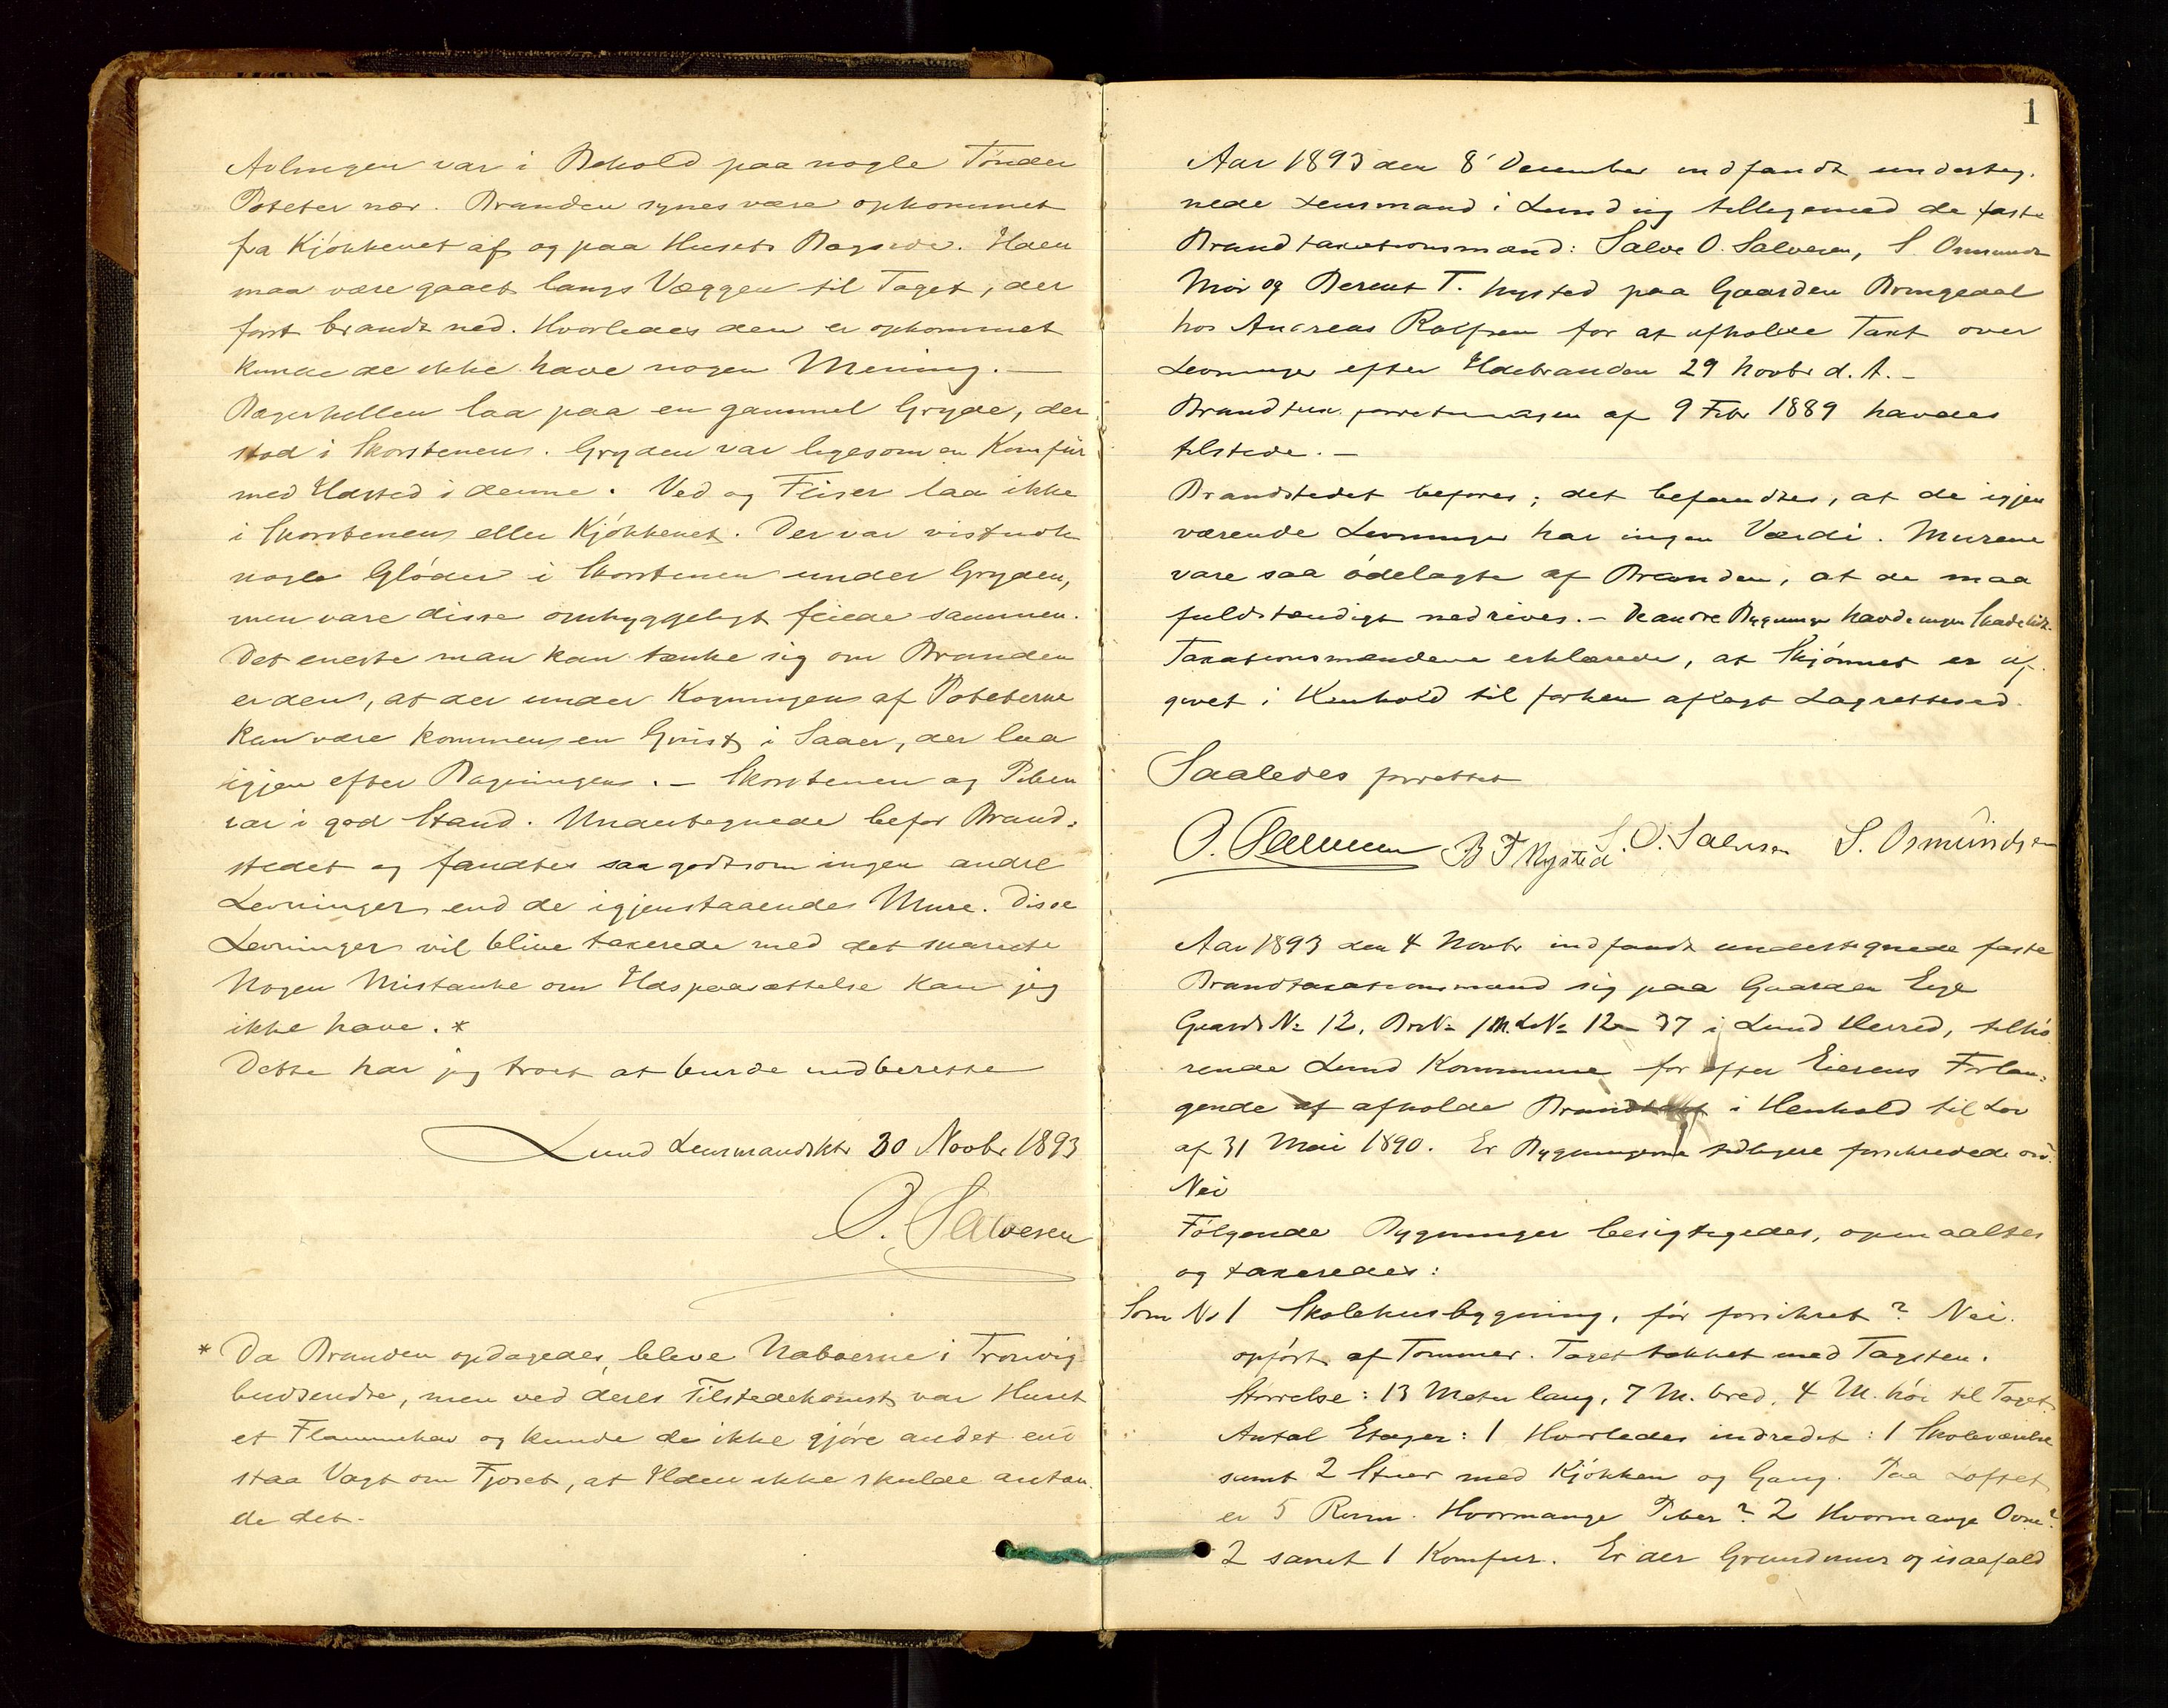 Avlingen var i Behold paa nogle Tønder
Poteter nær. Branden synes være opkommet
fra Kjøkkenet af og paa Husets Bagside. Ilden
maa være gaaet langs Væggen til Taget, der
først brandt ned. Hvorledes den er opkommet
kunde de ikke have nogen Mening. —
Bagerhellen laa paa en gammel Gryde, der
stod i Skorstenen. Gryden var ligesom en Komfür
med Ildsted i denne. Ved og Fliser laa ikke
i Skorstenen eller Kjøkkenet. Der var vistnok
nogle Gløder i Skorstenen under Gryden,
men vare disse omhyggeligt feiede sammen.
Det eneste man kan tænke sig om Branden
er den, at der under Kogningen af Poteterne
kan være kommen en Gnist i Saaer, der laa
igjen efter Bagningen. — Skorstenen og Piben
var i god Stand. Undertegnede befor Brand-
stedet og fandtes saa godtsom ingen andre
Levninger end de igjenstaaende Mure. Disse
Levninger vil blive taxerede med det snareste
Nogen Mistanke om Ildspaasættelse kan jeg
ikke have. *
Dette har jeg troet at burde indberette
Lund Lensmandsktr 30 Novbr 1893
O. Salvesen
* Da Branden opdagedes, bleve Naboerne i Tronvig
budsendte, men ved deres Tilstedekomst var Huset
et Flammehav og kunde de ikke gjøre andet end
staa Vagt om Fjøset, at Ilden ikke skulde antæn
de det.
1
Aar 1893 den 8' December indfandt underteg-
nede Lensmand i Lund sig tilligemed de faste
Brandtaxationsmænd: Salve O. Salvesen, S. Osmunds
Moi og Berent T. Nysted paa Gaarden Bringedal
hos Andreas Rolfsen for at afholde Taxt over
Levninger efter Ildebranden 29 Novbr d. A. —
Brandtax. forretningen af 9 Febr 1889 havdes
tilstede. —
Brandstedet befores; det befandtes, at de igjen
værende Levninger har ingen Værdi. Murene
vare saa ødelagte af Branden, at de maa
fuldstændigt nedrives. — De andre Bygninger havde ingen Skade lidt.
Taxationsmændene erklærede, at Skjønnet er af-
givet i Henhold til forhen aflagt Lagrettesed.
Saaledes forrettet
O. Salvesen B T Nysted S. O. Salvesen S. Osmundsen
Aar 1893 den 4 Novbr indfandt undertegnede faste
Brandtaxationsmænd sig paa Gaarden Eige
Gaards No 12, Brs No 1 M. L No 12 37 i Lund Herred, tilhø
rende Lund Kommune for efter Eierens Forlan-
gende at afholde Brandtaxt i Henhold til Lov
af 31 Mai 1890. Er Bygningerne tidligere forsikrede
Nei
Følgende Bygninger besigtigedes, opmaaltes
og taxeredes:
Som No 1 Skolehusbygning, før forsikret? Nei.
opført af Tømmer. Taget tækket med Tagsten.
Størrelse: 13 Meter lang, 7 M. bred, 4 M. høi til Taget.
Antal Etager: 1 Hvorledes indredet: 1 Skoleværelse
samt 2 Stuer med Kjøkken og Gang. Paa Loftet
er 5 Rum. Hvormange Piber? 2 Hvormange Ovne?
2 samt 1 Komfur. Er der Grundmur og isaafald